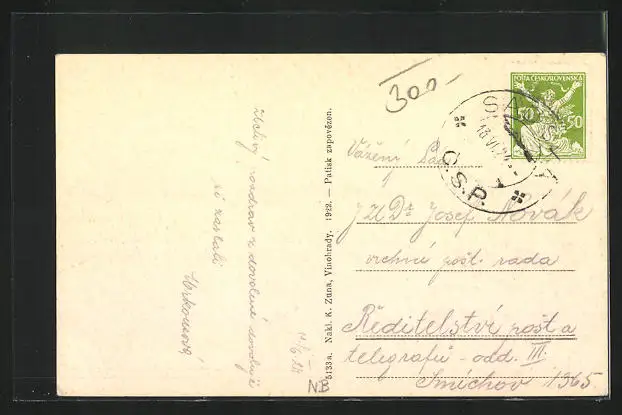 300.-
POŠTA ČESKOSLOVENSKÁ
50 50
Č.S.P.
Vážený Pan
JUDr Josef Novák
vrchní pošt. rada
Ředitelství pošt a
telegrafů - odd. III.
Smíchov 1365
5133a. Nakl. K. Zuna, Vinohrady. 1922. — Patisk zapovězen.
pozdrav z dovolené
NB